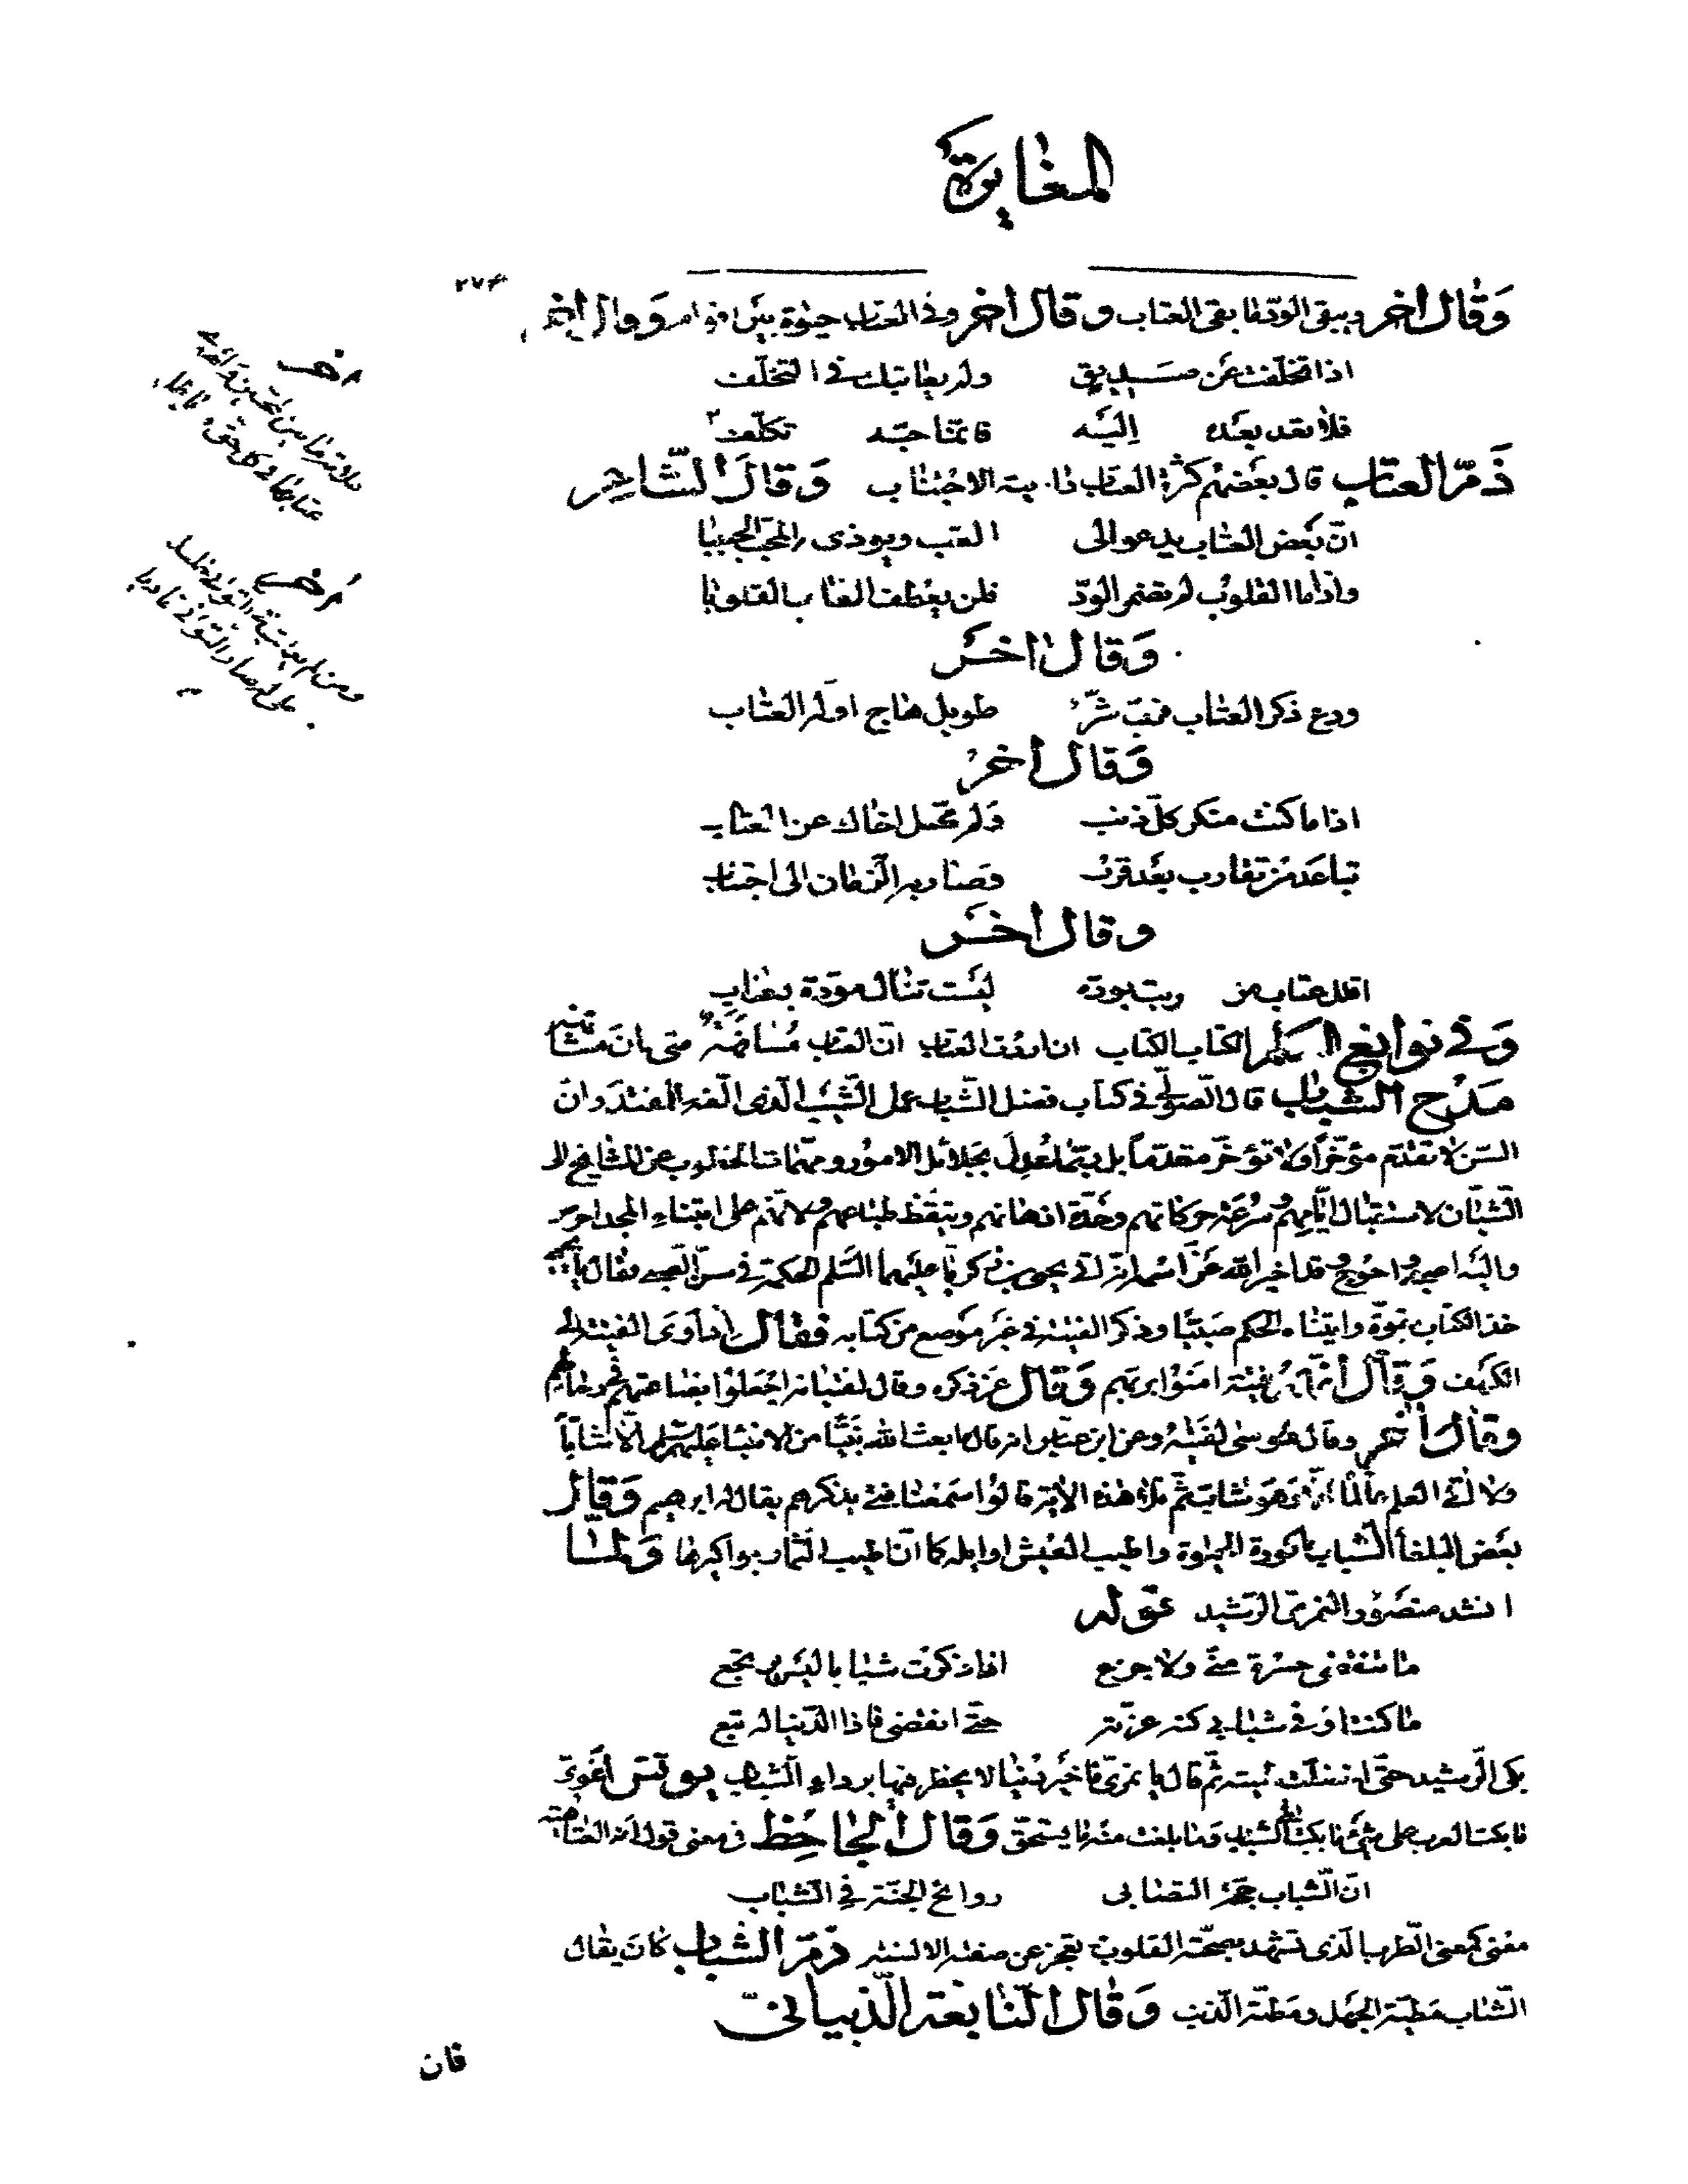 المغايرة
٢٧٤
وقال اخر ويبقى الودّ ما بقى العتاب وقال اخر وفى العتاب حيوة بين اقوام وقال اخر
اذا تخلّفت عن صديق ولم يعاتبك فى التخلّف
فلا تعد بعده اليه فانّما حبّه تكلّف
ذمّ العتاب قال بعضهم كثرة العتاب داعية الاجتناب وقال الشّاعر
انّ بعض العتاب يدعو الى العتب ويوذى المحبّ الحبيبا
واذا ما القلوب لم تضمر الودّ فلن يعطف العتاب القلوبا
وقال اخر
ودع ذكر العتاب فربّ شرّ طويل هاج اوّله العتاب
وقال اخر
اذا ما كنت منكر كلّ ذنب ولم تجلل اخاك عن العتاب
تباعد من تقارب بعد قرب وصار به الزّمان الى اجتناب
وقال اخر
اقلل عتاب من ربت بودّه ليست تنال مودّة بعتاب
وفى نوابغ الكلم الكتاب الكتاب ان اردت العتاب انّ العتاب مسافهة متى كان مشافهة
مدح الشباب قال الصّولى فى كتاب فضل الشّباب على الشّيب الّذى الّفه للمقتدر وانّ
السّنّ لا تقدّم مؤخّراً ولا تؤخّر مقدّماً بل ربّما عدل بجلائل الامور ومهمّات الخطوب عن المشايخ الى
الشّبّان لاستقبال ايّامهم وسرعة حركاتهم وحدّة اذهانهم وتيقّظ طباعهم ولانّهم على ابتناء المجد احرص
واليه اصبى واحوج وقد اخبر الله عزّ اسمه انه اتى يحيى بن زكريّا عليهما السّلم الحكمة فى سنّ الصّبى فقال يا يحيى
خذ الكتاب بقوّة واتيناه الحكم صبيّا وذكر الفتية فى غير موضع من كتابه فقال اذ اوى الفتية الى
الكهف وقال انّهم فتية امنوا بربّهم وقال عزّ ذكره وقال لفتيانه اجعلوا بضاعتهم فى رحالهم
وقال اخر وقال موسى لفتيه وعن ابن عبّاس انه قال ما بعث الله نبيّا من الانبياء عليهم السّلم الّا شابّاً
ولا اتى العلم عالما الّا وهو شابّ ثمّ تلا هذه الاية قالوا سمعنا فتى يذكرهم يقال له ابرهيم وقال
بعض البلغاء الشّباب باكورة الحيوة واطيب العيش اوايله كما انّ اطيب الثّمار بواكيرها ولمّا
انشد منصور النمرىّ الرّشيد قوله
ما تنقضى حسرة منّى ولا جزع اذا ذكرت شبابا ليس يرتجع
ما كنت اوفى شبابى كنه عزّته حتّى انقضى فاذا الدّنيا له تبع
بكى الرّشيد حتّى اخضلت لحيته ثمّ قال يا نمرىّ ما خير دنيا لا يخطر فيها برداء الشّباب يونس النحوىّ
ما بكت العرب على شىء ما بكت على الشّباب وما بلغت منه ما يستحقّ وقال الجاحظ فى معنى قول ابى العتاهية
انّ الشّباب حجّة التصابى روائح الجنّة فى الشّباب
معنى كمعنى الطّرب الّذى تشهد بصحّته القلوب وتعجز عن صفته الالسنة ذمّ الشباب كان يقال
الشّباب مطيّة الجهل ومظنّة الذّنب وقال النّابغة الذّبيانىّ
فان
اخر
اخر